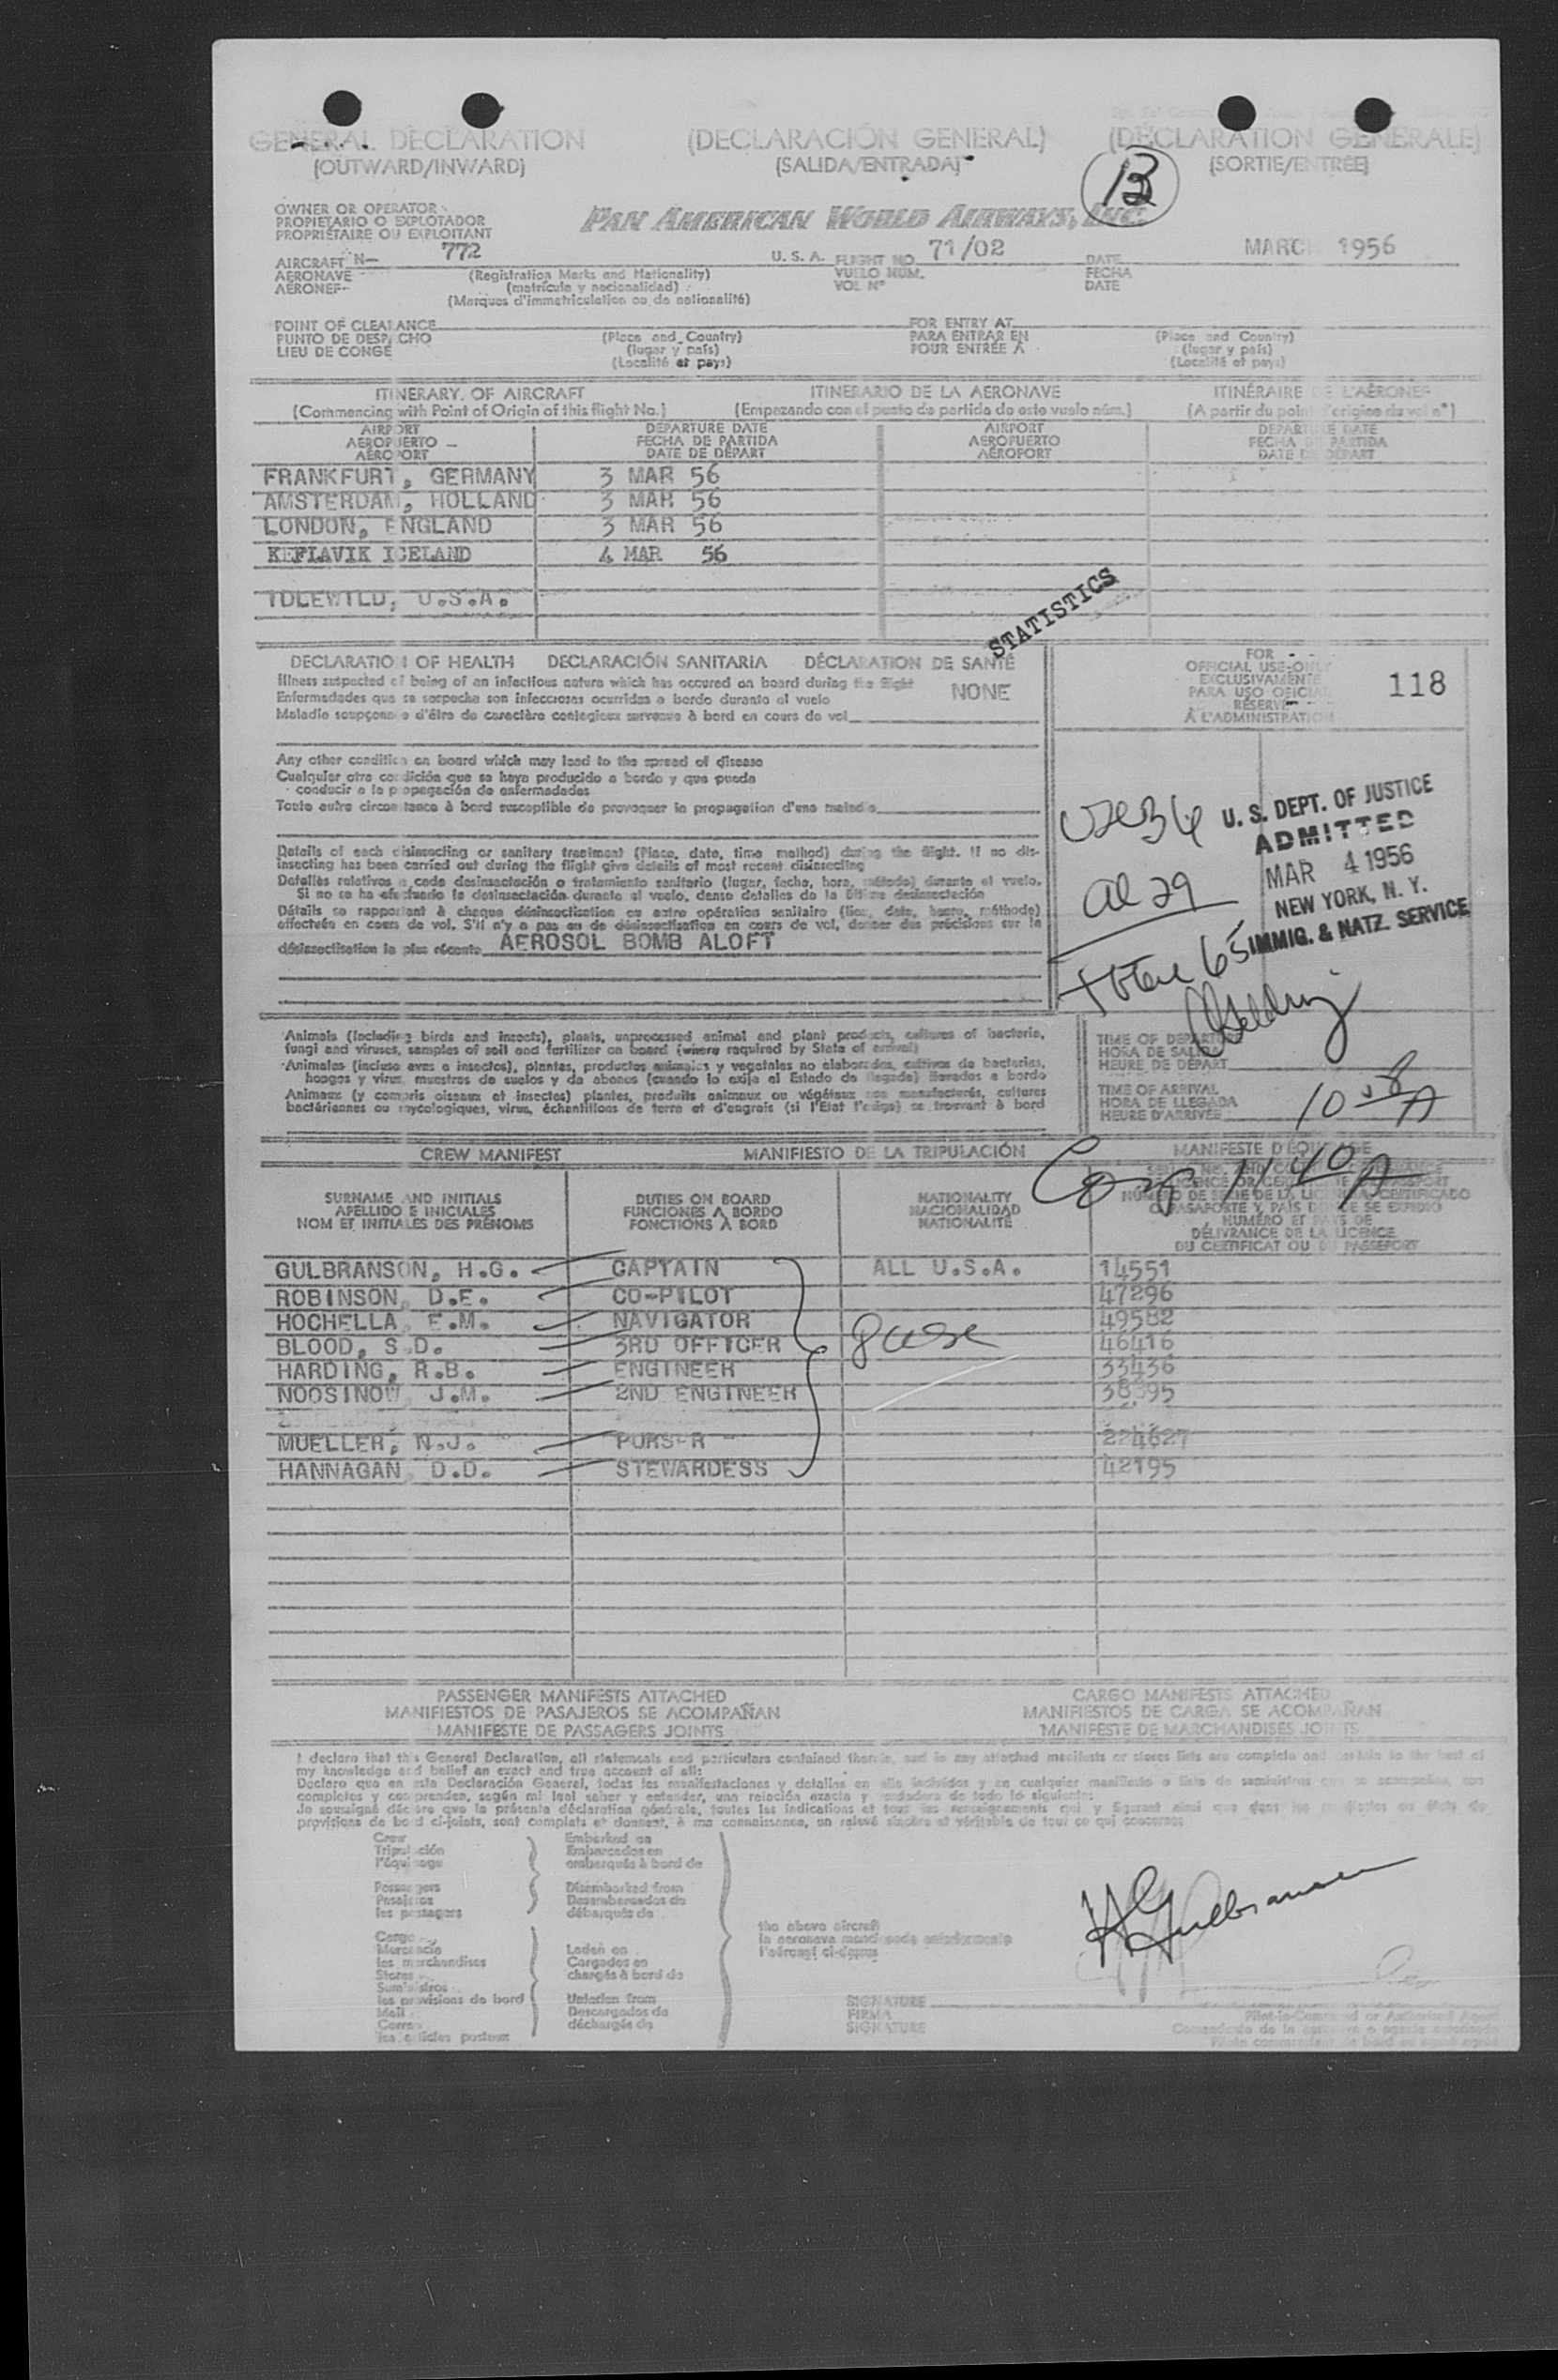 GENERAL DECLARATION (DECLARACIÓN GENERAL) (DECLARATION GENERALE)
(OUTWARD/INWARD) (SALIDA/ENTRADA) (SORTIE/ENTRÉE)
13
OWNER OR OPERATOR
PROPIETARIO O EXPLOTADOR
PROPRIÉTAIRE OU EXPLOITANT
PAN AMERICAN WORLD AIRWAYS, INC.
AIRCRAFT N- 772 U. S. A. FLIGHT NO. 71/02 DATE MARCH 1956
AERONAVE (Registration Marks and Nationality) VUELO NÚM. FECHA
AÉRONEF (matrícula y nacionalidad) VOL Nº DATE
(Marques d'immatriculation ou de nationalité)
POINT OF CLEARANCE FOR ENTRY AT
PUNTO DE DESPACHO (Place and Country) PARA ENTRAR EN (Place and Country)
LIEU DE CONGÉ (lugar y país) POUR ENTRÉE À (lugar y país)
(Localité et pays) (Localité et pays)
ITINERARY OF AIRCRAFT ITINERARIO DE LA AERONAVE ITINÉRAIRE DE L'AÉRONEF
(Commencing with Point of Origin of this flight No.) (Empezando con el punto de partida de este vuelo núm.) (A partir du point d'origine du vol nº)
AIRPORT DEPARTURE DATE AIRPORT DEPARTURE DATE
AEROPUERTO FECHA DE PARTIDA AEROPUERTO FECHA DE PARTIDA
AÉROPORT DATE DE DÉPART AÉROPORT DATE DE DÉPART
FRANKFURT, GERMANY 3 MAR 56
AMSTERDAM, HOLLAND 3 MAR 56
LONDON, ENGLAND 3 MAR 56
KEFLAVIK ICELAND 4 MAR 56
IDLEWILD, U.S.A.
STATISTICS
DECLARATION OF HEALTH DECLARACIÓN SANITARIA DÉCLARATION DE SANTÉ
Illness suspected of being of an infectious nature which has occured on board during the flight
Enfermedades que se sospecha son infecciosas ocurridas a bordo durante el vuelo NONE
Maladie soupçonnée d'être de caractère contagieux survenue à bord en cours de vol
FOR
OFFICIAL USE ONLY
EXCLUSIVAMENTE
PARA USO OFICIAL
RÉSERVÉ
À L'ADMINISTRATION
118
Any other condition on board which may lead to the spread of disease
Cualquier otra condición que se haya producido a bordo y que pueda
conducir a la propagación de enfermedades
Toute autre circonstance à bord susceptible de provoquer la propagation d'une maladie
U. S. DEPT. OF JUSTICE
ADMITTED
MAR 4 1956
NEW YORK, N. Y.
IMMIG. & NATZ. SERVICE
USC 36
al 29
Total 65
Details of each disinsecting or sanitary treatment (Place, date, time method) during the flight. If no dis-
insecting has been carried out during the flight give details of most recent disinsecting
Detalles relativos a cada desinsectación o tratamiento sanitario (lugar, fecha, hora, método) durante el vuelo.
Si no se ha efectuado la desinsectación durante el vuelo, dense detalles de la última desinsectación
Détails se rapportant à chaque désinsectisation ou autre opération sanitaire (lieu, date, heure, méthode)
effectuée en cours de vol. S'il n'y a pas eu de désinsectisation en cours de vol, donner des précisions sur la
désinsectisation la plus récente AEROSOL BOMB ALOFT
Animals (including birds and insects), plants, unprocessed animal and plant products, cultures of bacteria,
fungi and viruses, samples of soil and fertilizer on board (where required by State of arrival)
Animales (incluso aves e insectos), plantas, productos animales y vegetales no elaborados, cultivos de bacterias,
hongos y virus, muestras de suelos y de abonos (cuando lo exija el Estado de llegada) llevados a bordo
Animaux (y compris oiseaux et insectes) plantes, produits animaux ou végétaux non manufacturés, cultures
bactériennes ou mycologiques, virus, échantillons de terre et d'engrais (si l'État l'exige) se trouvant à bord
TIME OF DEPARTURE
HORA DE SALIDA
HEURE DE DÉPART
TIME OF ARRIVAL
HORA DE LLEGADA
HEURE D'ARRIVÉE 10 08 A
CREW MANIFEST MANIFIESTO DE LA TRIPULACIÓN MANIFESTE D'ÉQUIPAGE
Comp 11 40 A
SURNAME AND INITIALS DUTIES ON BOARD NATIONALITY
APELLIDO E INICIALES FUNCIONES A BORDO NACIONALIDAD
NOM ET INITIALES DES PRÉNOMS FONCTIONS À BORD NATIONALITÉ
NÚMERO DE SERIE DE LA LICENCIA, CERTIFICADO
O PASAFORTE Y PAÍS DONDE SE EXPIDIÓ
NUMÉRO ET PAYS DE
DÉLIVRANCE DE LA LICENCE
DU CERTIFICAT OU DU PASSEPORT
GULBRANSON, H.G. CAPTAIN ALL U.S.A. 14551
ROBINSON, D.E. CO-PILOT 47296
HOCHELLA, E.M. NAVIGATOR 49582
BLOOD, S.D. 3RD OFFICER 46416
HARDING, R.B. ENGINEER 33436
NOOSINOW J.M. 2ND ENGINEER 38395
MUELLER, N.J. PURSER 224627
HANNAGAN, D.D. STEWARDESS 42195
8 USC
PASSENGER MANIFESTS ATTACHED CARGO MANIFESTS ATTACHED
MANIFIESTOS DE PASAJEROS SE ACOMPAÑAN MANIFIESTOS DE CARGA SE ACOMPAÑAN
MANIFESTE DE PASSAGERS JOINTS MANIFESTE DE MARCHANDISES JOINTS
I declare that this General Declaration, all statements and particulars contained therein, and in any attached manifests or stores lists are complete and certain to the best of
my knowledge and belief an exact and true account of all:
Declaro que en esta Declaración General, todas las manifestaciones y detalles en ella incluidos y en cualquier manifiesto o lista de suministros que se acompañan, son
completos y comprenden, según mi leal saber y entender, una relación exacta y verdadera de todo lo siguiente:
Je soussigné déclare que la présente déclaration générale, toutes les indications et tous les renseignements qui y figurent ainsi que dans les manifestes ou états de
provisions de bord ci-joints, sont complets et donnent, à ma connaissance, un relevé sincère et véritable de tout ce qui concerne:
Crew Embarked on
Tripulación Embarcados en
l'équipage embarqués à bord de
Passengers Disembarked from
Pasajeros Desembarcados de
les passagers débarqués de
the above aircraft
la aeronave mencionada anteriormente
l'aéronef ci-dessus
Cargo
Mercancía Laden on
les marchandises Cargados en
Stores chargés à bord de
Suministros
les provisions de bord Unladen from
Mail Descargados de
Correo déchargés de
les articles postaux
HG Gulbransen
SIGNATURE
FIRMA
SIGNATURE
Pilot-in-Command or Authorized Agent